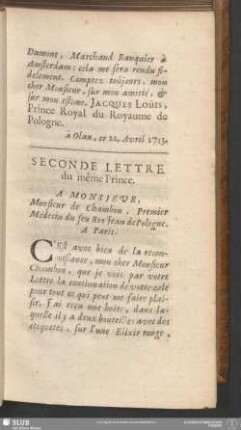 Dumont, Marchand Banquier à
Amsterdam: cela me sera rendu fi-
delement. Comptez toûjours, mon
cher Monsieur, sur mon amitié, &
sur mon estime. JACQUES LOUÏS,
Prince Royal du Royaume de
Pologne.
à Olau, ce 22. Avril 1713.
SECONDE LETTRE
du même Prince.
A MONSIEUR,
Monsieur de Chambon, Premier
Médecin du feu Roy Jean de Pologne.
A Paris.
C'Est avec bien de la recon-
noissance, mon cher Monsieur
Chambon, que je vois par votre
Lettre la continuation de votre zele
pour tout ce qui peut me faire plai-
sir. J'ai reçu une boëte, dans la-
quelle il y a deux bouteilles avec des
étiquettes, sur l'une Elixir rouge,
SLUB